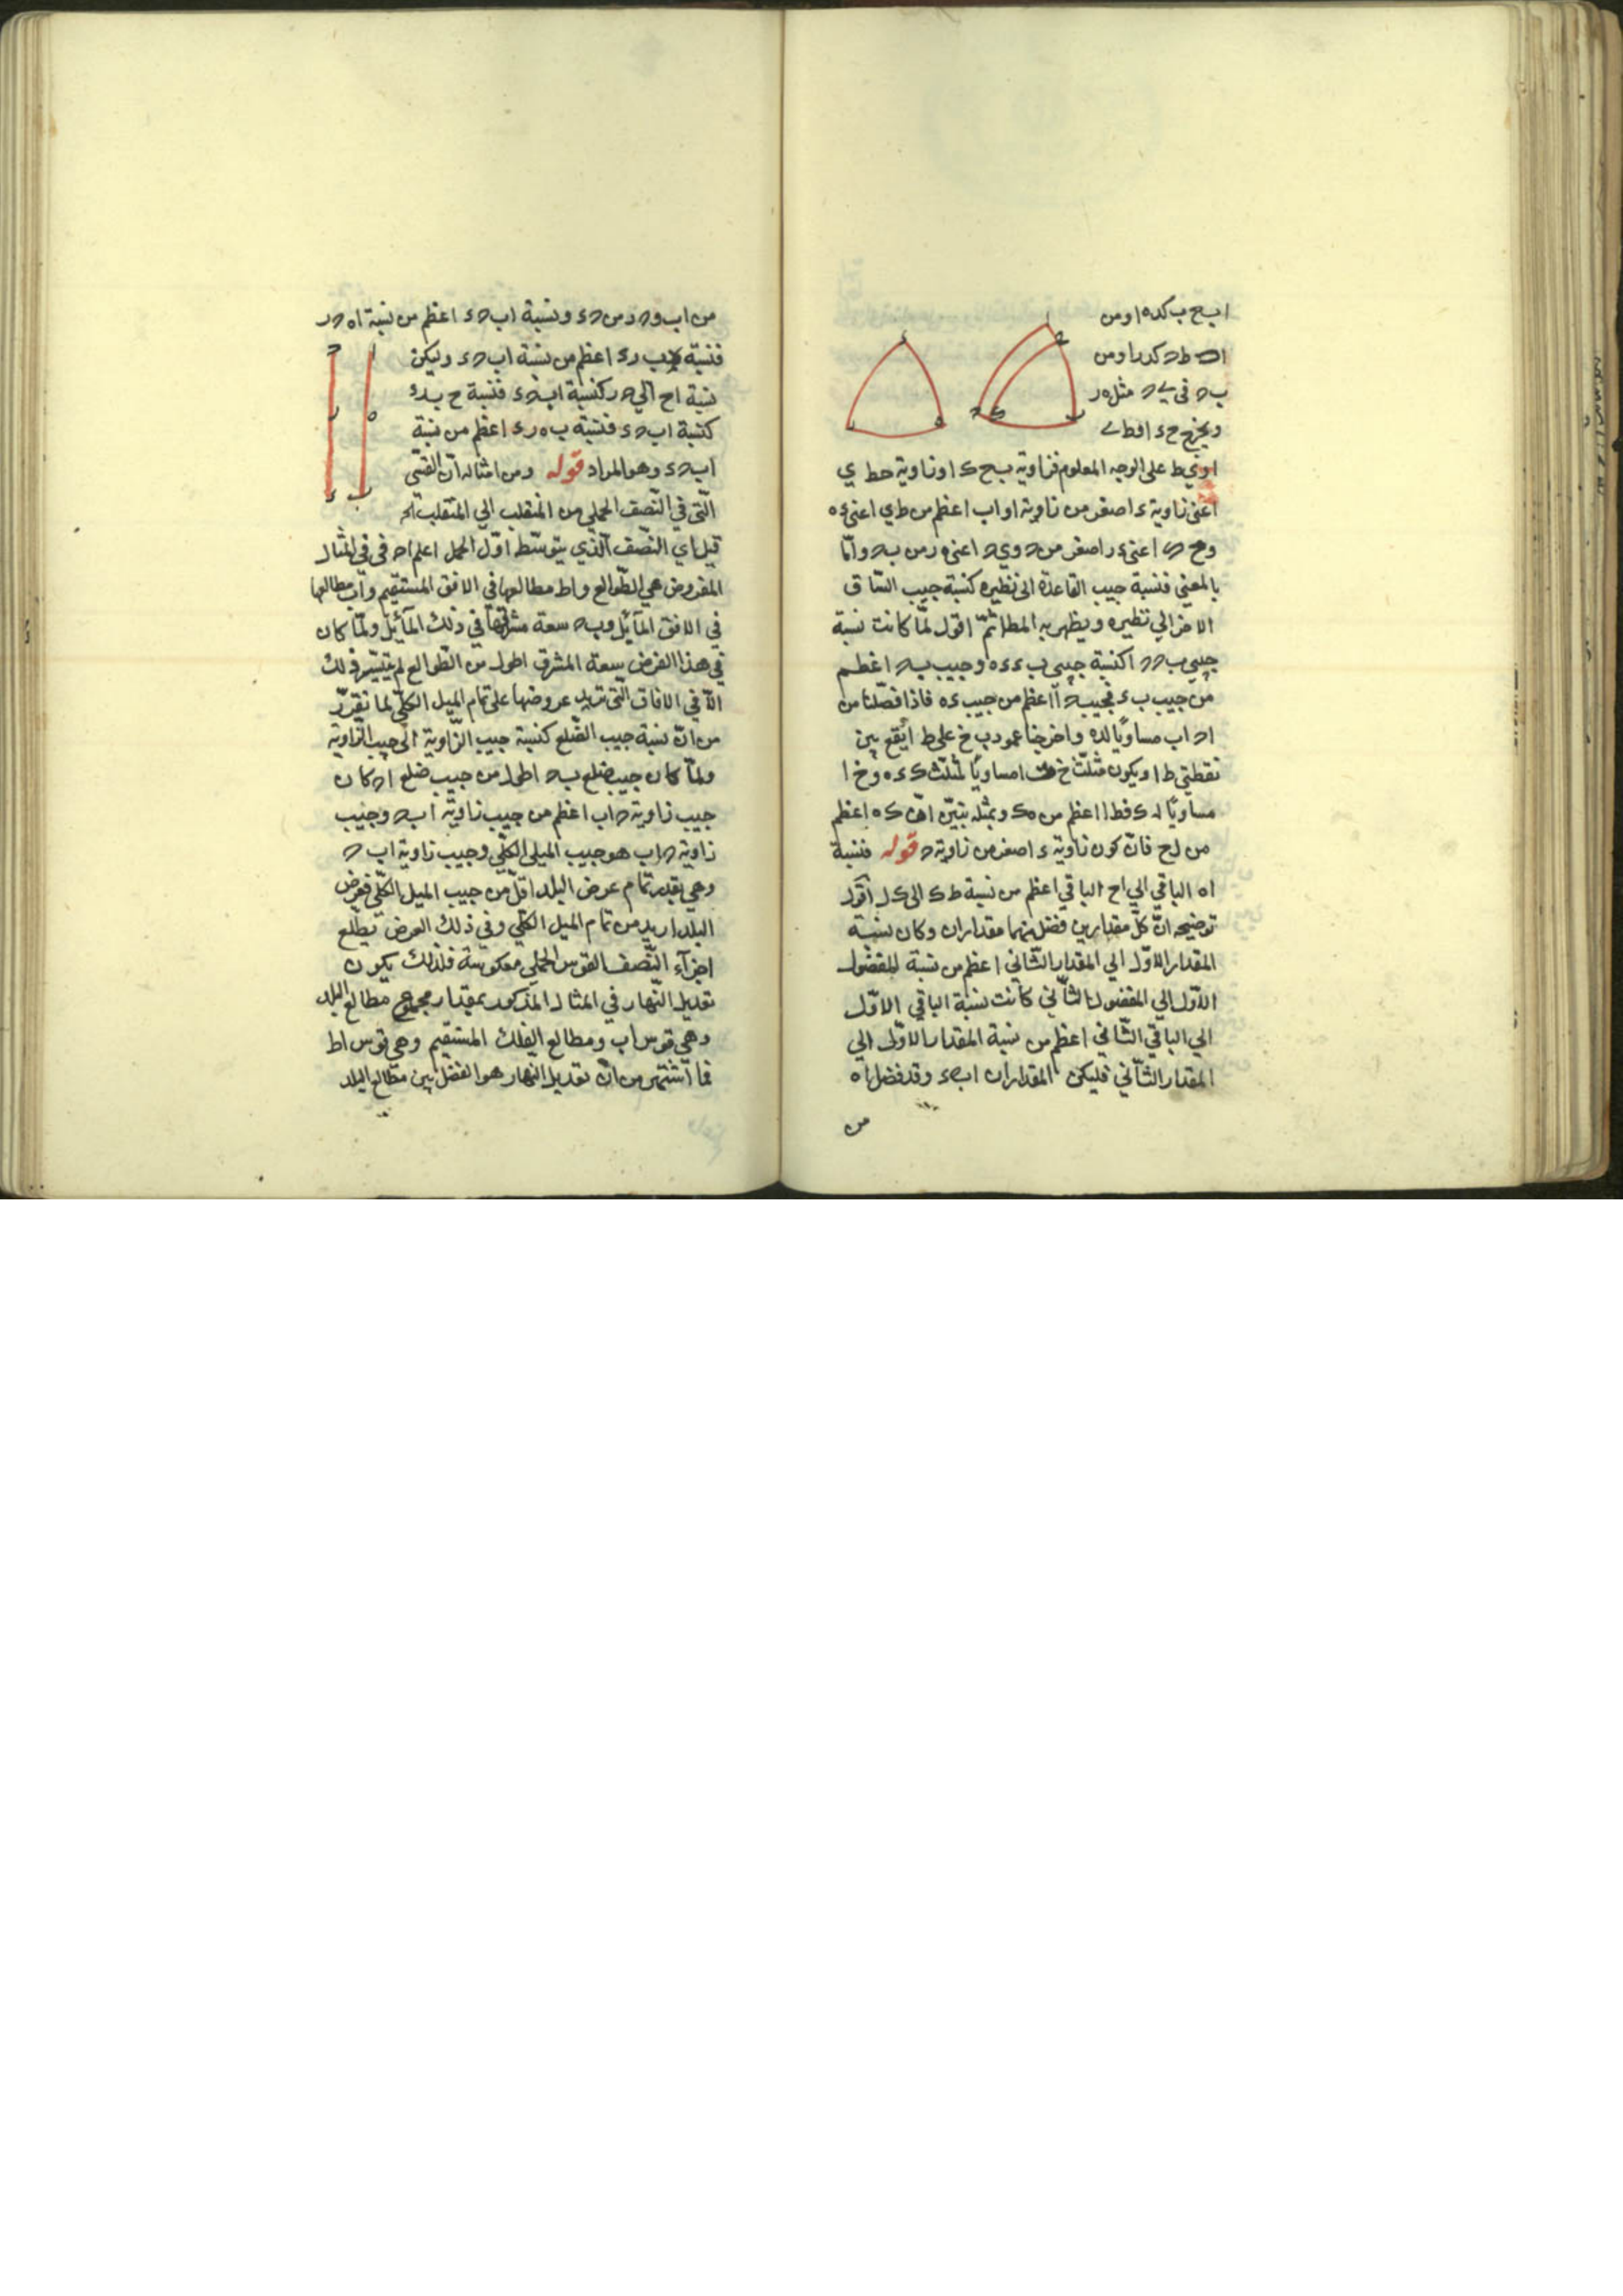 اب ح ب كده او من
ا ط ح كدر او من
ب ح في ى ح مثل ه ر
ويخرج ح ء او ط ى
او ى ط على الوجه المعلوم فزاوية ب ح ك او زاوية ح ط ي
اعني زاوية ء اصغر من زاوية ا و اب اعظم من ط ي اعني ء ه
و ح اعني ء ر اصغر من ح و ى ح اعني ه ر من ب ح واما
بالمعني فنسبة جيب القاعدة الى نظيره كنسبة جيب الساق
الاخر الي نظيره ويظهر به المط ثمّ اقول لمّا كانت نسبة
جيبي ب ح ح ا كنسبة جيبي ب ء ء ه وجيب ب ح اعظم
من جيب ب ء فجيب ح ا اعظم من جيب ء ه فاذا فصّلنا من
ا ح اب مساويًا لده واخرجنا عمود ب خ على ط ا يقع بين
نقطتي ط ا ويكون مثلّث خ ا مساويًا لمثلّث ك ء ه و خ ا
مساويًا له ك فط ا اعظم من ه ك وبمثله يتبيّن انّ ك ه اعظم
من ل ح فانّ كون زاوية ء اصغر من زاوية ح قوله فنسبة
ا ه الباقي الي ا ح الباقي اعظم من نسبة ط ك الى ك ل اقول
توضيحه انّ كلّ مقدارين فضل منهما مقداران وكان نسبة
المقدار الاوّل الي المقدار الثّاني اعظم من نسبة المفضول
الاوّل الي المفضول الثّاني كانت نسبة الباقي الاوّل
الي الباقي الثّاني اعظم من نسبة المقدار الاوّل الي
المقدار الثّاني فليكن المقداران اب ح ء وقد فضل ا ه
من
من اب و ح ر من ح ء ونسبة اب ح ء اعظم من نسبة ا ه ح ر
فنسبة ه ب ر ء اعظم من نسبة اب ح ء وليكن
نسبة ا ح الي ح ر كنسبة اب ح ء فنسبة ح ب ر ء
كنسبة اب ح ء فنسبة ب ه ر ء اعظم من نسبة
اب ح ء وهو المراد قوله ومن امثاله انّ القسّى
الّتي في النّصف الحملي من المنقلب الي المنقلب الخ
قيل اي النّصف الّذي يتوسّط اوّل الحمل اعلم ا ح في في المثال
المفروض هي الطّوالع و اط مطالعها في الافق المستقيم و اب مطالعها
في الافق المآئل و ب ح سعة مشرقها في ذلك المآئل ولمّا كان
في هذا الفرض سعة المشرق اطول من الطّوالع لم يتيسّر ذلك
الّا في الافاق الّتي تزيد عروضها على تمام الميل الكلّي لما تقرّر
من انّ نسبة جيب الضّلع كنسبة جيب الزّاوية الى جيب الزّاوية
ولمّا كان جيب ضلع ب ح اطول من جيب ضلع ا ح كان
جيب زاوية ح اب اعظم من جيب زاوية اب ح وجيب
زاوية ح اب هو جيب الميل الكلّي وجيب زاوية اب ح
وهي بقدر تمام عرض البلد اقلّ من جيب الميل الكلّي فعرض
البلد ازيد من تمام الميل الكلّي وفي ذلك العرض تطلع
اجزآء النّصف القوس الحملي معكوسة فلذلك يكون
تعديل النّهار في المثال المذكور بمقدار مجموع مطالع البلد
وهي قوس اب ومطالع الفلك المستقيم وهي قوس اط
فما اشتهر من انّ تعديل النّهار هو الفضل بين مطالع البلد